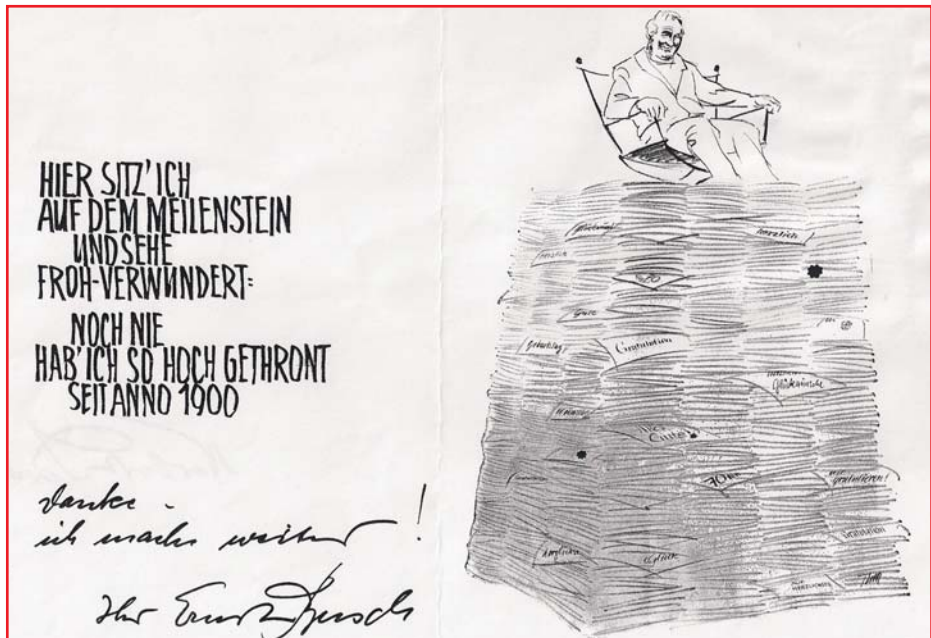 HIER SITZ' ICH
AUF DEM MEILENSTEIN
UND SEHE
FROH-VERWUNDERT:
NOCH NIE
HAB' ICH SO HOCH GETHRONT
SEIT ANNO 1900
Danke -
ich mache weiter!
Ihr Ernst Busch
herzlich
70
Gute
Geburtstag!
Gratulation
Glückwünsche
70
gratulieren!
Gratulation
HERZLICHEN